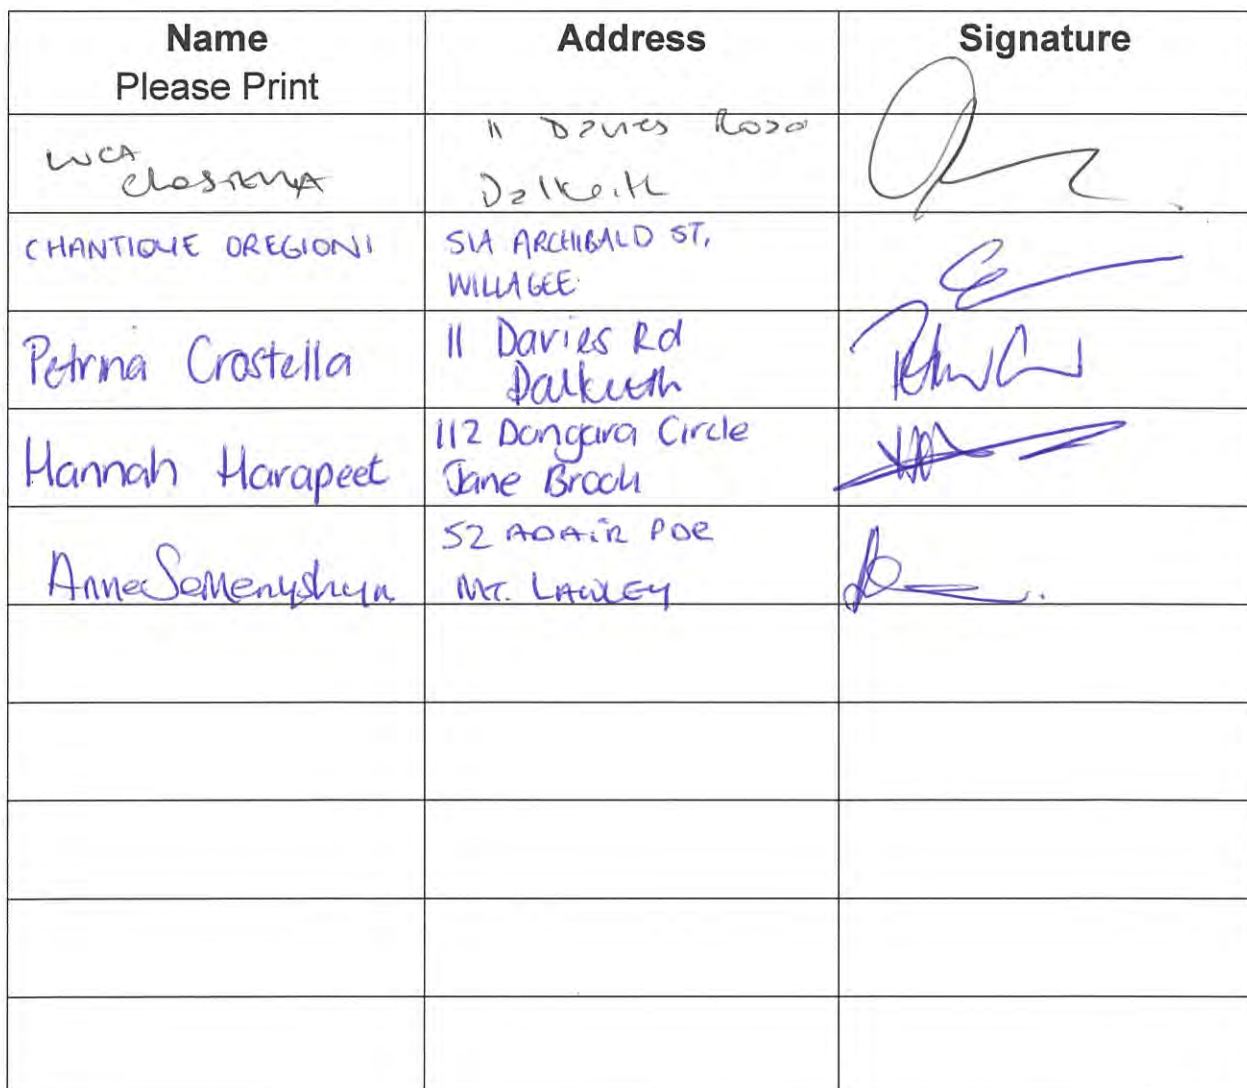 Name Address Signature
Please Print
LUCA 11 Davies Road
CROSTELLA Dalkeith
CHANTIQUE OREGIONI 51A ARCHIBALD ST,
WILLAGEE
Petrina Crostella 11 Davies Rd
Dalkeith
Hannah Harapeet 112 Dongara Circle
Jane Brook
Anna Semenyshyn 52 ADAIR PDE
MT. LAWLEY